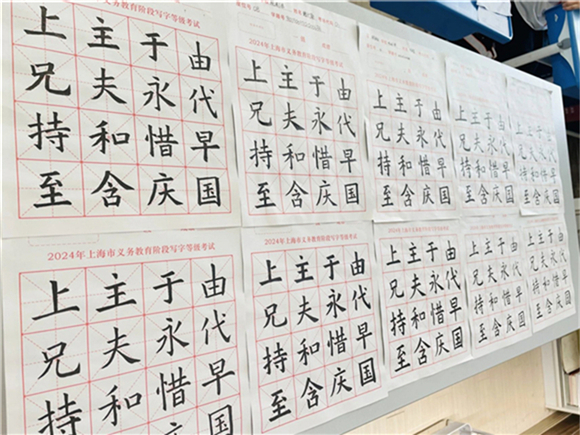 义务教育阶段写字等级考试
上主于由
兄夫永代
持和惜早
至含庆国
2024年上海市义务教育阶段写字等级考试
上主于由
兄夫永代
持和惜早
至含庆国
上主于由
兄夫永代
持和惜早
至含庆国
上主于由
兄夫永代
持和惜早
至含庆国
上主于由
兄夫永代
持和惜早
至含庆国
2024年上海市义务教育阶段写字等级考试
上主于由
兄夫永代
持和惜早
2024年上海市义务教育阶段写字等级考试
上主于由
兄夫永代
持和惜早
至含庆国
上主于由
兄夫永代
持和惜早
至含庆国
上主于由
兄夫永代
持和惜早
至含庆国
上主于由
兄夫永代
持和惜早
至含庆国